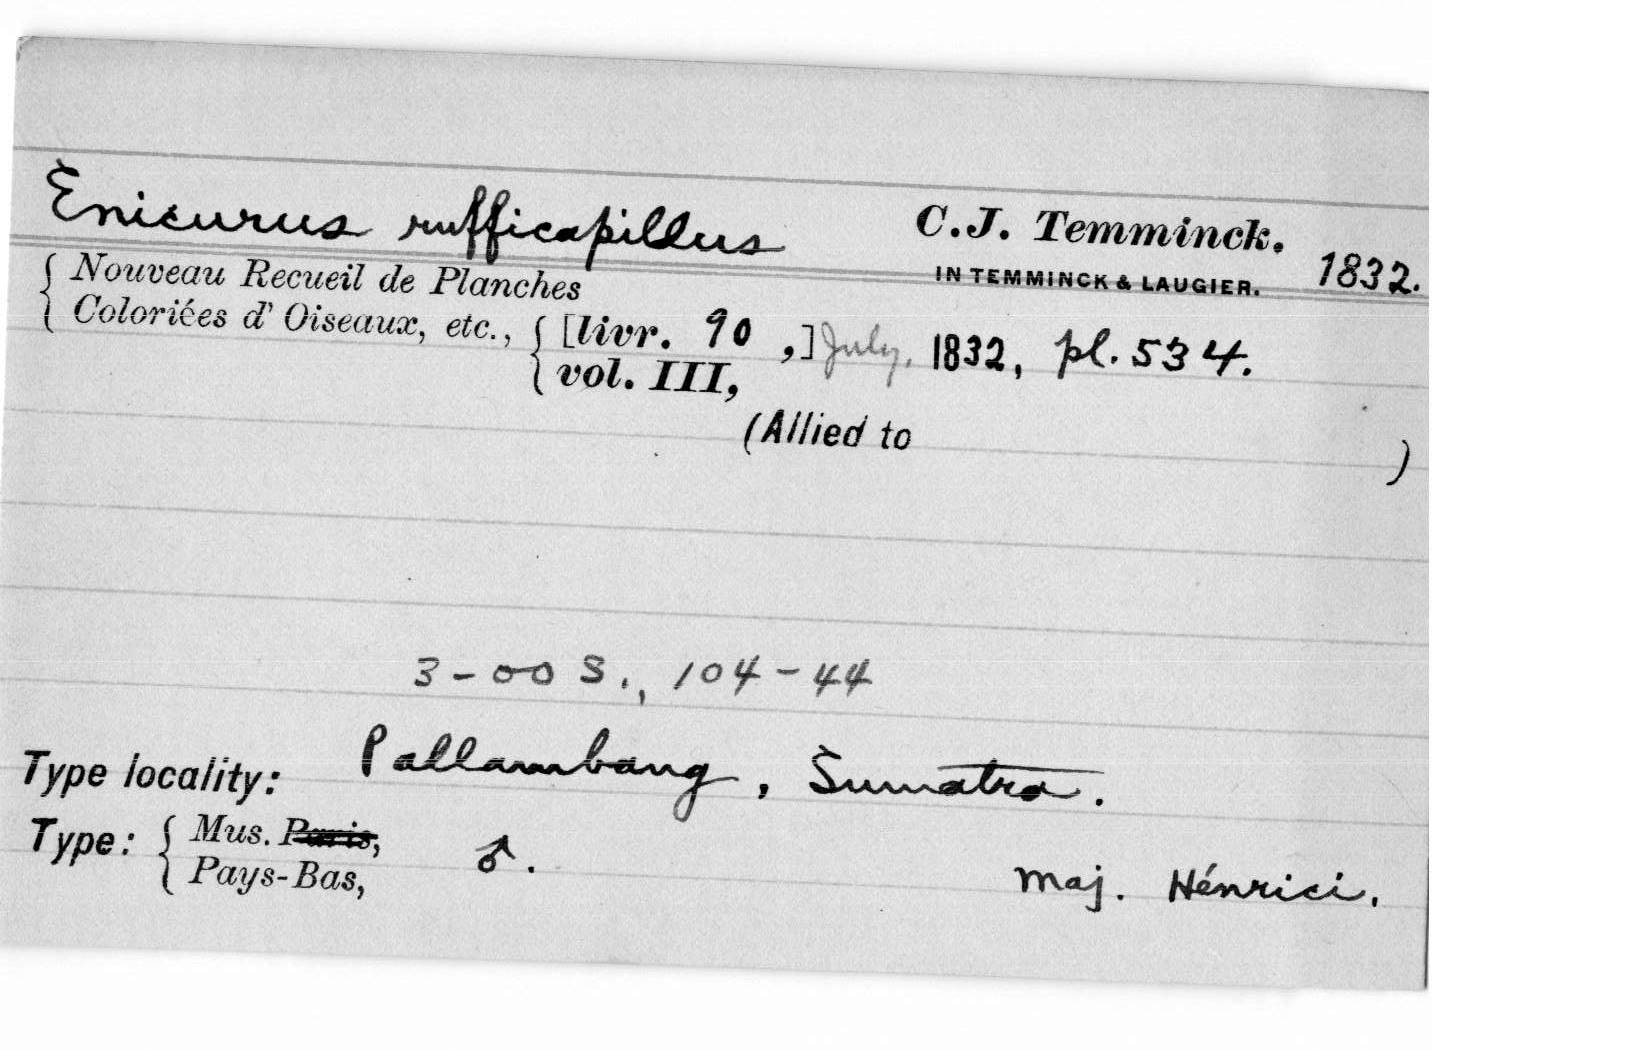 Enicurus rufficapillus C.J. Temminck.
IN TEMMINCK & LAUGIER. 1832.
{ Nouveau Recueil de Planches
Coloriées d' Oiseaux, etc., { [livr. 90 ,] July, 1832, pl. 534.
vol. III,
(Allied to )
3-00 S., 104-44
Type locality: Pallambang, Sumatra.
Type: { Mus. Paris, ♂.
Pays-Bas, Maj. Hénrici.